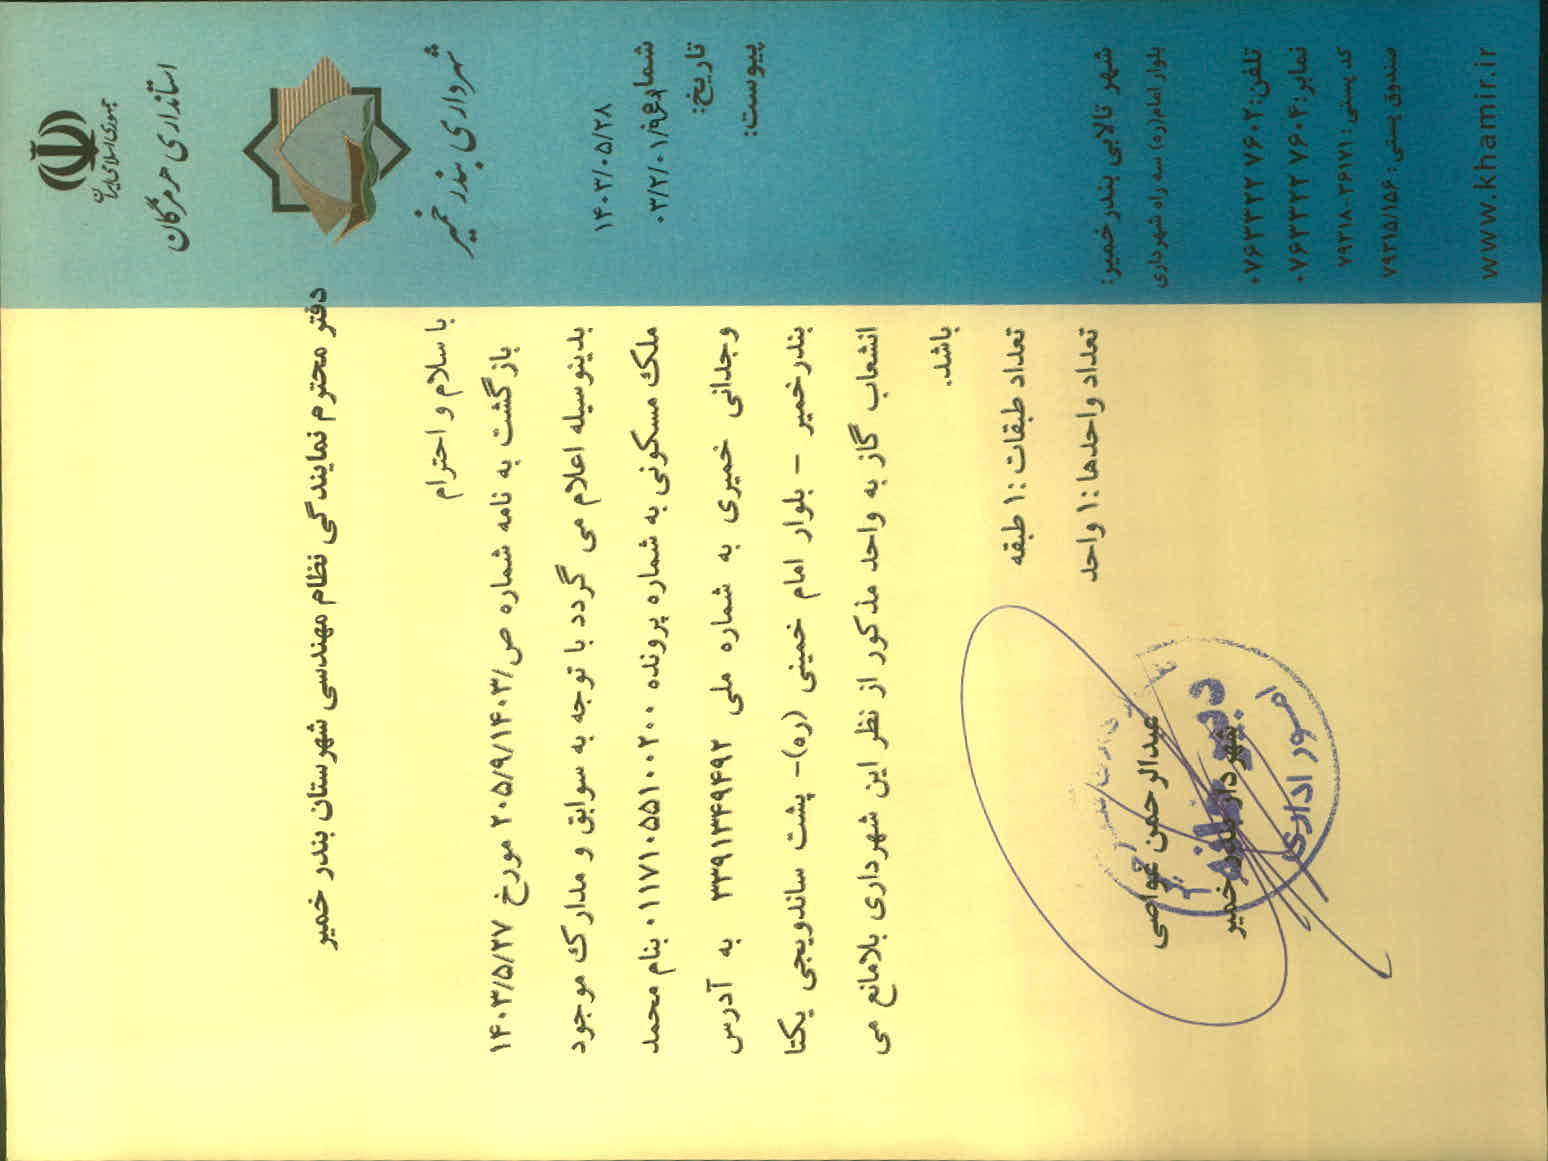 جمهوری اسلامی ایران
استانداری هرمزگان
شهرداری بندر خمیر
۱۴۰۳/۰۵/۲۸
شماره:
تاریخ:
پیوست:
دفتر محترم نمایندگی نظام مهندسی شهرستان بندر خمیر
با سلام و احترام
بازگشت به نامه شماره ص/۲۰۵/۹/۱۴۰۳ مورخ ۱۴۰۳/۵/۲۷
بدینوسیله اعلام می گردد با توجه به سوابق و مدارک موجود
ملک مسکونی به شماره پرونده ۰۱۱۷۱۰۵۵۱۰۰۲۰۰ بنام محمد
وجدانی خمیری به شماره ملی ۳۳۹۱۳۴۹۴۹۲ به آدرس
بندرخمیر – بلوار امام خمینی (ره)- پشت ساندویچی یکتا
انشعاب گاز به واحد مذکور از نظر این شهرداری بلامانع می
باشد.
تعداد طبقات :۱ طبقه
تعداد واحدها :۱ واحد
عبدالرحمن غواصی
شهردار بندر خمیر
دبیرخانه
امور اداری
شهر تالابی بندر خمیر:
بلوار امام(ره) سه راه شهرداری
تلفن: ۰۷۶۳۳۲۲۷۶۰۲
نمابر: ۰۷۶۳۳۲۲۷۶۰۴
کد پستی : ۷۹۳۱۸-۳۶۱۷۱
صندوق پستی : ۷۹۳۱۵/۱۵۶
www.khamir.ir